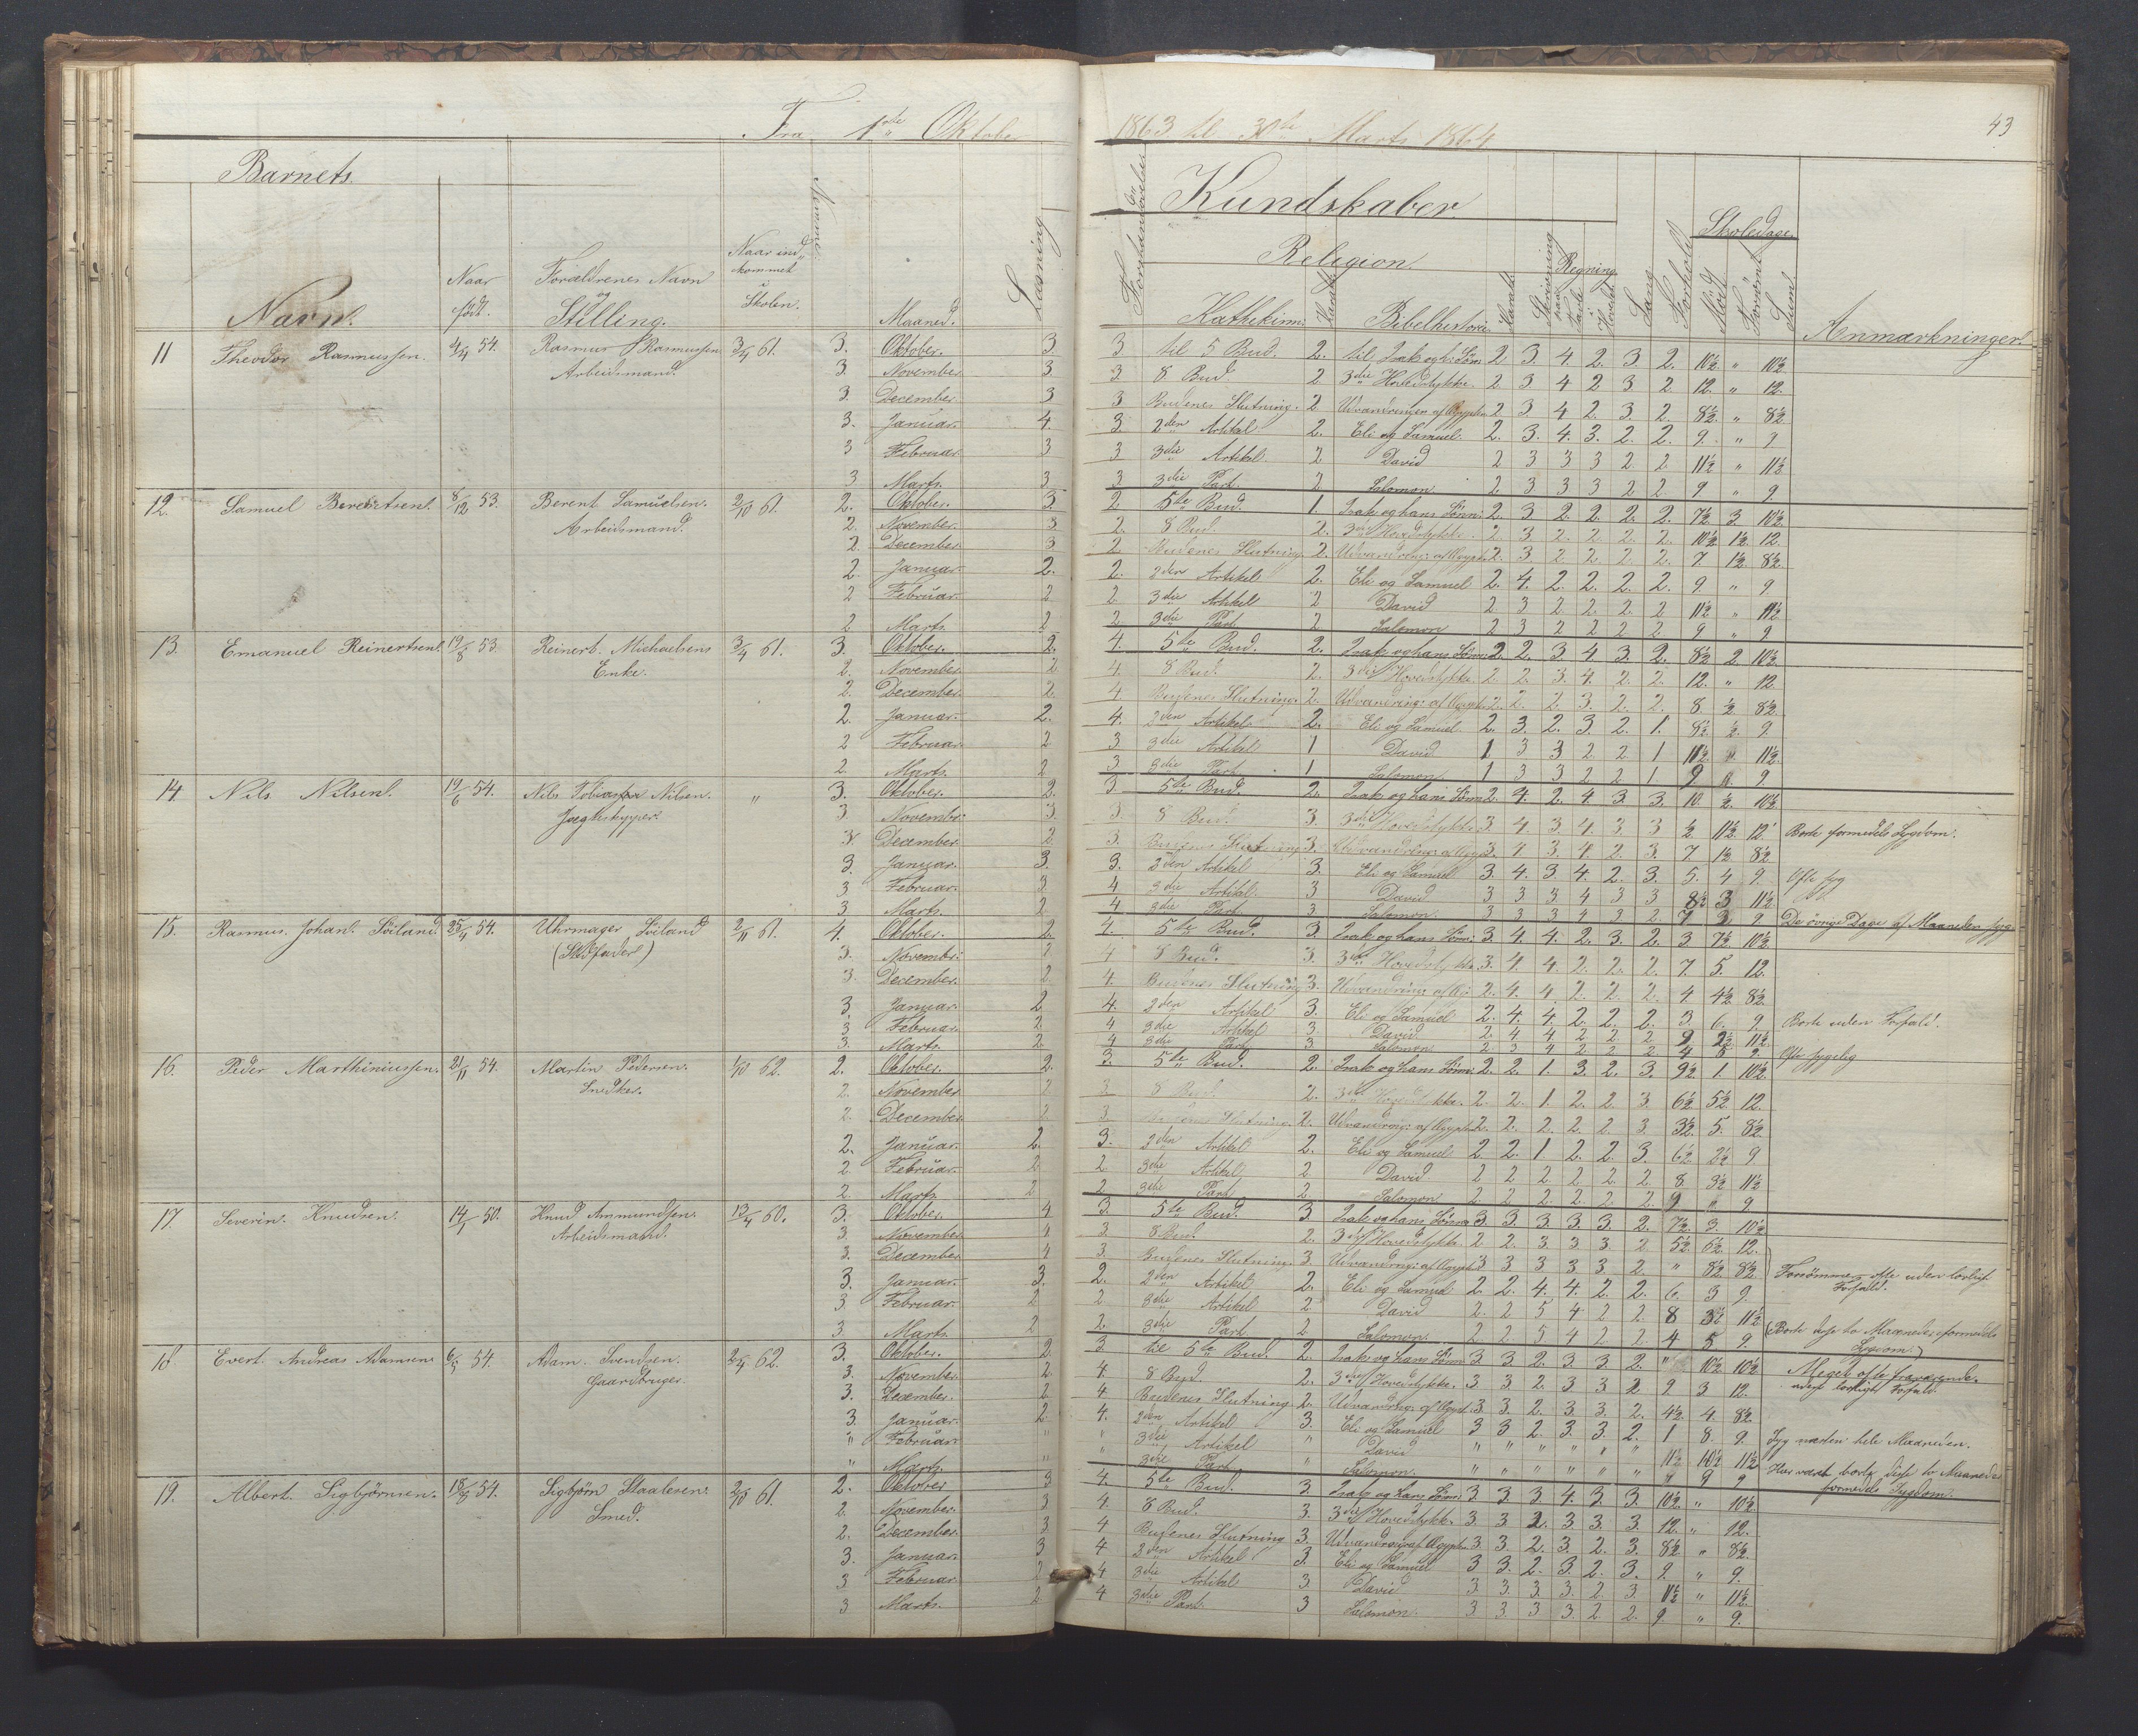 Fra 1ste Oktober 1863 til 30te Marts 1864
43
Barnets
Navn.
Naar født.
Forældrenes Navn og Stilling.
Naar indkommet i Skolen.
Maaned.
Læsning
Kundskaber
Religion.
Kathekism:
Bibelhistorie.
Regning.
Sang
Forhold
Skoledage.
Mødt
Forsømt
Sum.
Anmærkninger.
11 Theodor Rasmussen. 4/4 54. Rasmus Rasmussen 3/4 61. 3. Oktober. 3. 3 til 5 Bud. 2. til Isak og h: Søn: 2 3. 4 2. 3 2. 10½ " 10½
Arbeidsmand. 3. November 3 3 8 Bud. 2 3die Hovedstykke. 2. 3 4 2 3 2 12. " 12.
3. December. 3 3 Budenes Slutning. 2 Udvandringen af Ægypten 2. 3 4 2. 3. 2. 8½ " 8½
3. Januar. 4. 3. 2den Artikel 2. Eli og Samuel. 2. 3. 4. 3. 2. 2. 9. " 9
3 Februar. 3 3 3die Artikel. 2 David 2 3 3 3 2 2 11½ " 11½
3 Marts. 3 3 3die Part. 2 Salomon 2 3 3 3 2 2. 9 " 9
12. Samuel Berentsen. 8/12 53. Berent Samuelsen. 2/10 61. 2. Oktober. 3. 2 5te Bud. 1. Isak og hans Sønn: 2. 3 2. 2. 2. 2. 7½ 3 10½
Arbeidsmand. 2. November. 3 2. 8 Bud. 2. 3die Hovedstykke. 2. 3 2. 2. 2. 2. 10½ 1½ 12.
2. December. 3 2 Budenes Slutning. 2. Udvandring: af Ægypt: 2. 3 2 2 2. 2. 7 1½ 8½
2. Januar. 2. 2. 2den Artikel 2. Eli og Samuel 2. 4. 2. 2. 2. 2. 9. " 9
2 Februar. 2 2. 3die Artikel 2 David 2 3 2 2. 2. 2 11½ " 11½
2 Marts. 2 2 3die Part. 2 Salomon 2 3 2 2 2 2. 9 " 9
13. Emanuel Reinertsen. 19/8 53. Reinert Michaelsens 3/4 61. 3. Oktober. 2. 4. 5te Bud. 2. Isak og hans Sønn: 2. 2. 3. 4 3. 2. 8½ 2. 10½
Enke. 2. November 2 4. 8 Bud. 2. 3die Hovedstykke. 2 2 3. 4. 2 2. 12. " 12
2. December. 2. 4 Budenes Slutning. 2. Udvandring: af Ægypt: 2. 2. 2. 3. 2. 2 8 ½ 8½
2. Januar. 2. 4. 2den Artikel 2. Eli og Samuel 2. 3. 2. 3. 2. 1. 8½ ½ 9.
2 Februar 2 3 3die Artikel 1 David 1 3 3 2 2 1 11½ " 11½
2. Marts. 2 3 3die Part. 1 Salomon 1 3 3 2 2 1. 9 " 9
14. Nils Nilsen. 19/6 54. Nils Nilsen. " 3. Oktober. 2. 3. 5te Bud. 2. Isak og hans Sønn: 2. 4. 2. 4. 3 3. 10. ½ 10½
Jægtskypper. 3. Novembr: 3. 3. 8 Bud. 3. 3die Hovedstykke 3. 4. 3. 4. 3 3 ½ 11½ 12. Borte formedels Sygdom.
3. December. 2 3. Budenes Slutning 3. Udvandring: af Ægypt: 3. 4 3. 4. 2. 3. 7 1½ 8½
3. Januar. 3. 3. 2den Artikel 3. Eli og Samuel 3. 4. 3 4. 2. 3. 5. 4 9. Ofte syg
3 Februar. 3. 4 3die Artikel 3 David 3 3 3 4 3 3 8½ 3 11½
3. Marts. 2. 4 3die Part. 3 Salomon. 3 3 3 4 3 2. 7 9 De øvrige Dage af Maaneden syg.
15. Rasmus Johan. Söiland. 25/4 54. Uhrmager Söiland 2/11 61. 4. Oktober. 2. 4. 5te Bud. 3 Isak og hans Sønn: 3. 4. 4. 2. 3. 2. 3 7½ 10½
(Stedfader) 3. Novembr: 2 4 8 Bud. 3. 3die Hovedstykke. 3. 4. 4. 2. 2. 2. 7. 5. 12.
3. December. 2. 4. Budenes Slutning 3. Udvandring: af Æg: 2. 4. 4. 2. 2. 2. 4 4½ 8½
3. Januar. 2. 4. 2den Artikel 3. Eli og Samuel 2. 4. 4. 2. 2. 2. 3. 6. 9. Borte uden Forfald.
3. Februar. 2 4 3die Artikel 3. David 2. 4 4 2 2 2 9 2½ 11½
3. Marts. 2. 4 3die Part 3. Salomon 2 3 4 2 2 2 4 5 9. Ofte sygelig
16. Peder Marthiniussen. 21/11 54. Martin Pedersen. 1/10 62. 2. Oktober. 2. 3. 5te Bud. 2. Isak og hans Sønn: 2. 2. 1. 3. 2. 3. 9½ 1. 10½
Snedker. 2. November 2 3 8 Bud. 2. 3die Hovedstykke. 2. 2. 1. 2. 2 3. 6½ 5½ 12.
2. December. 2 3 Budenes Slutning. 2. Udvandring: af Ægypt: 2. 2. 2. 2. 2. 3. 3½ 5. 8½
2. Januar. 2. 3. 2den Artikel 2. Eli og Samuel 2 2. 1 2. 2. 3. 6½ 2½ 9
2. Februar. 2 2 3die Artikel 2 David 2 2 2. 2. 2. 2. 8. 3½ 11½
2. Marts. 2 2 3die Part 2 Salomon 2 2 2. 2. 2. 2. 9 " 9.
17. Severin. Knudsen. 14/7 50. Knud Ammundsen. 13/4 60. 3. Oktober. 4 3. 5te Bud. 3. Isak og hans Sønn: 3. 3. 3. 3. 3. 2. 7½ 3. 10½
Arbeidsmand. 3. November. 4 3. 8 Bud. 2. 3die Hovedstykke. 2 2. 3. 3. 3. 2. 5½ 6½ 12.
3. December 4 3. Budenes Slutning. 3. Udvandring: af Ægypt: 3 3 3 3 3. 2. " 8½ 8½ Forsömmer ofte uden lovligt Forfald.
3. Januar. 3. 2. 2den Artikel 2. Eli og Samuel 2. 2. 4. 4. 2. 2. 6. 3 9.
3 Februar. 2 2. 3die Artikel 2 David 2. 2 5 4 2 2 8 3½ 11½
3. Marts. 2 2. 3die Part 2 Salomon. 2. 2. 5 4 2 2. 4 5 9. (Borte disse to Maaneder formedels Sygdom.)
18. Evert Andreas Adamsen. 6/5 54. Adam. Svendsen. 2/4 62. 3. Oktober. 2. 3. til 5te Bud. 2. Isak og hans Sønn: 3 3 2. 3. 3 2. " 10½ 10½
Gaardbruger. 3. November. 2. 4. 8 Bud. 2. 3die Hovedstykke. 3 3 2. 3 3 2 9 3 12. Meget ofte fraværende
3. December. 2 4 Budenes Slutning 2. Udvandring: af Ægypt: 3. 3. 2. 3. 3. 2. 4½ 4. 8½ uden lovligt Forfald.
3. Januar. 2 4. 2den Artikel 3. Eli og Samuel 3 3 2. 3. 3. 2. 1 8. 9. Syg næsten hele Maaneden.
" Februar. " " 3die Artikel " David " " " " " " 11½
" Marts. " " 3die Part. " Salomon. " " " " " " 9 9 Har været borte disse to Maaneder formedels Sygdom.
19. Albert Sigbjörnsen. 18/9 54. Sigbjørn Staalesen. 2/10 61. 2. Oktober 3 4. 5te Bud. 3 Isak og hans Sønn: 3. 3. 3. 4. 3. 3. 10½ " 10½
Smed. 2. November. 3 4. 8 Bud. 3. 3die Hovedstykke. 3. 3 2. 3 3. 3. 12. " 12.
2. December. 3 4 Budenes Slutning 3. Udvandring: af Ægypt: 3 3. 2. 3 2. 3. 8½ " 8½
3. Januar. 3 4 2den Artikel 3. Eli og Samuel 3 3. 2. 3. 2. 3. 9. " 9.
3. Februar. 2 4 3die Artikel 3. David 3 3. 3. 3 2 3 11½ " 11½
3 Marts. 2 4 3die Part. 3 Salomon. 3 3. 3 3. 2. 2. 9. " 9.